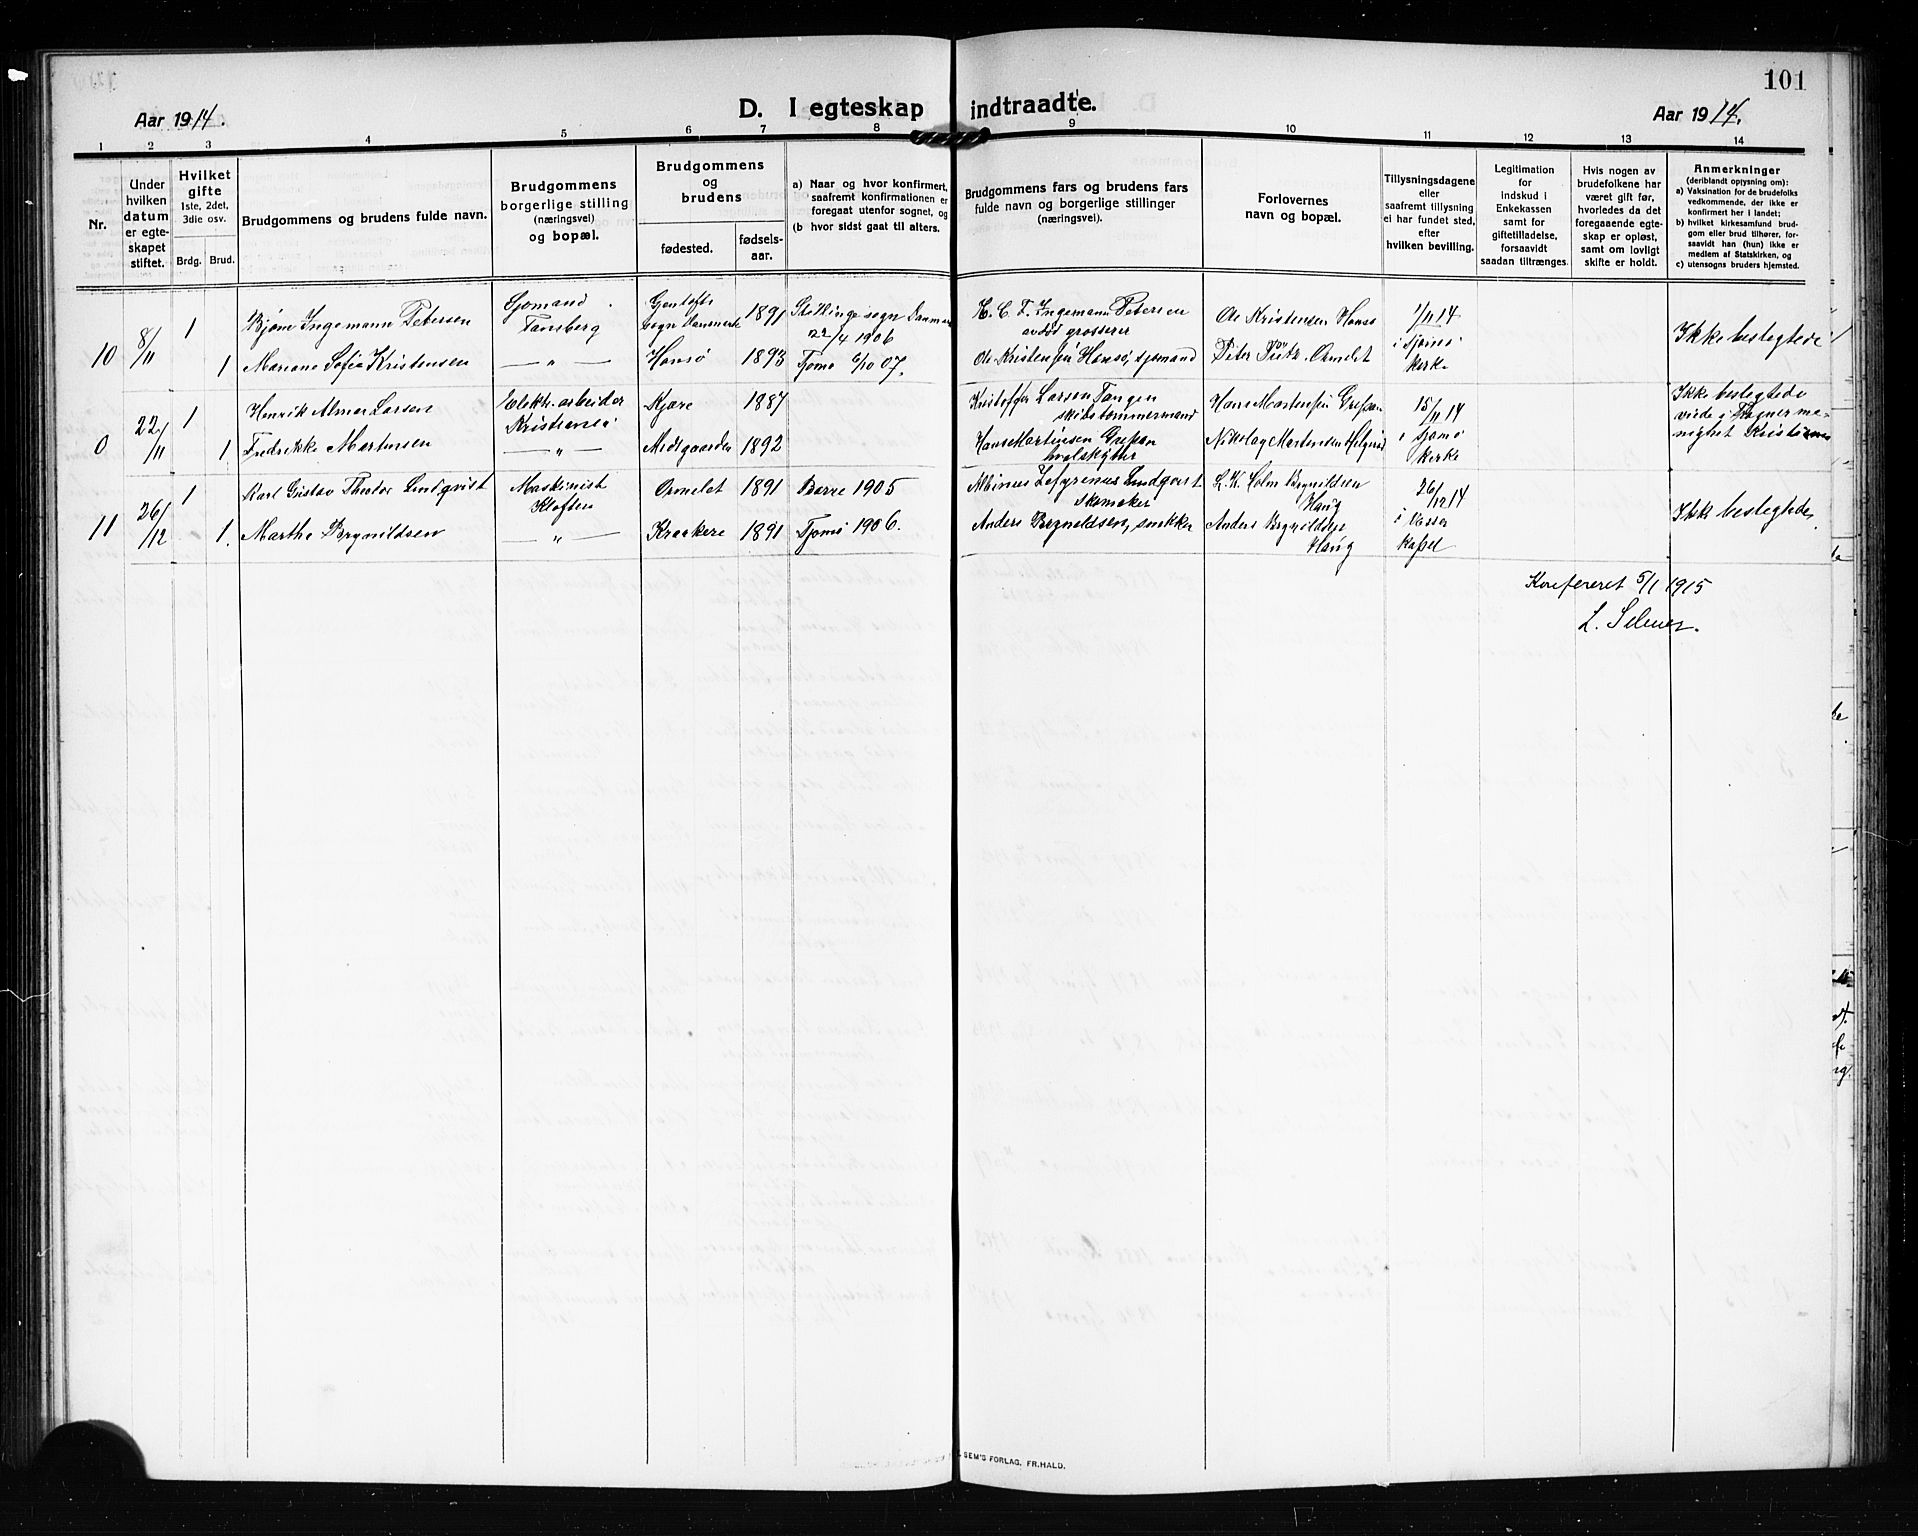 101
Aar 1914.
D. I egteskap indtraadte.
Aar 1914.
1 2 3 4 5 6 7 8 9 10 11 12 13 14
Nr.
Under hvilken datum er egteskapet stiftet.
Hvilket gifte 1ste, 2det, 3die osv.
Brdg. Brud.
Brudgommens og brudens fulde navn.
Brudgommens borgerlige stilling (næringsvei) og bopæl.
Brudgommens og brudens
fødested. fødselsaar.
a) Naar og hvor konfirmert, saafremt konfirmationen er foregaat utenfor sognet, og
(b hvor sidst gaat til alters.
Brudgommens fars og brudens fars fulde navn og borgerlige stillinger (næringsvei).
Forlovernes navn og bopæl.
Tillysningsdagene eller saafremt tillysning ei har fundet sted, efter hvilken bevilling.
Legitimation for indskud i Enkekassen samt for giftetilladelse, forsaavidt saadan tiltrænges.
Hvis nogen av brudefolkene har været gift før, hvorledes da det foregaaende egteskap er opløst, samt om lovligt skifte er holdt.
Anmerkninger
(deriblandt oplysning om):
a) Vaksination for de brudefolks vedkommende, der ikke er konfirmert her i landet;
b) hvilket kirkesamfund brudgom eller brud tilhører, forsaavidt han (hun) ikke er medlem av Statskirken, og
c) utensogns bruders hjemsted.
10 8/11 1 Bjøne Ingemann Petersen Sjømand Tønsberg Gjentofte sogn Danmark 1891 sogn Danmark 22/4 1906 H. C. F. Ingemann Petersen avdød grosserer Ole Kristensen Hansø 1/11 14
1 Mariane Sofie Kristensen — „ — Hansø 1893 Tjømø 6/10 07. Ole Kristensen Hansø, sjømand Peter Ormelet i Tjømø kirke Ikke beslegtede
0 22/11 1 Henrik Almar Larsen Elektr. arbeider Kristiania Kjære 1887 Kristoffer Larsen Tangen skibstømmermand Hans Martinsen Grepan 15/11 14 Ikke beslegtede
1 Fredrikke Martinsen — „ — Midtgaarden 1892 Hans Martinsen Grepan hvalskytter Nikolay Martinsen i Tjømø kirke
11 26/12 1 Karl Gustav Theodor Lindqvist Maskinist Kloften Ormelet 1891 Borre 1905 Albinus Zefyrenus Lindqvist skomaker L. K. Holm Brynildsen Haug 26/12 14
1. Marthe Brynildsen — „ — Kraakere 1891 Tjømø 1906. Anders Brynildsen, snekker Anders Brynildsen Haug i Vasser kapel Ikke beslegtede
Konfereret 5/1 1915
L. Selmer.
SEM'S FORLAG, FR.HALD.